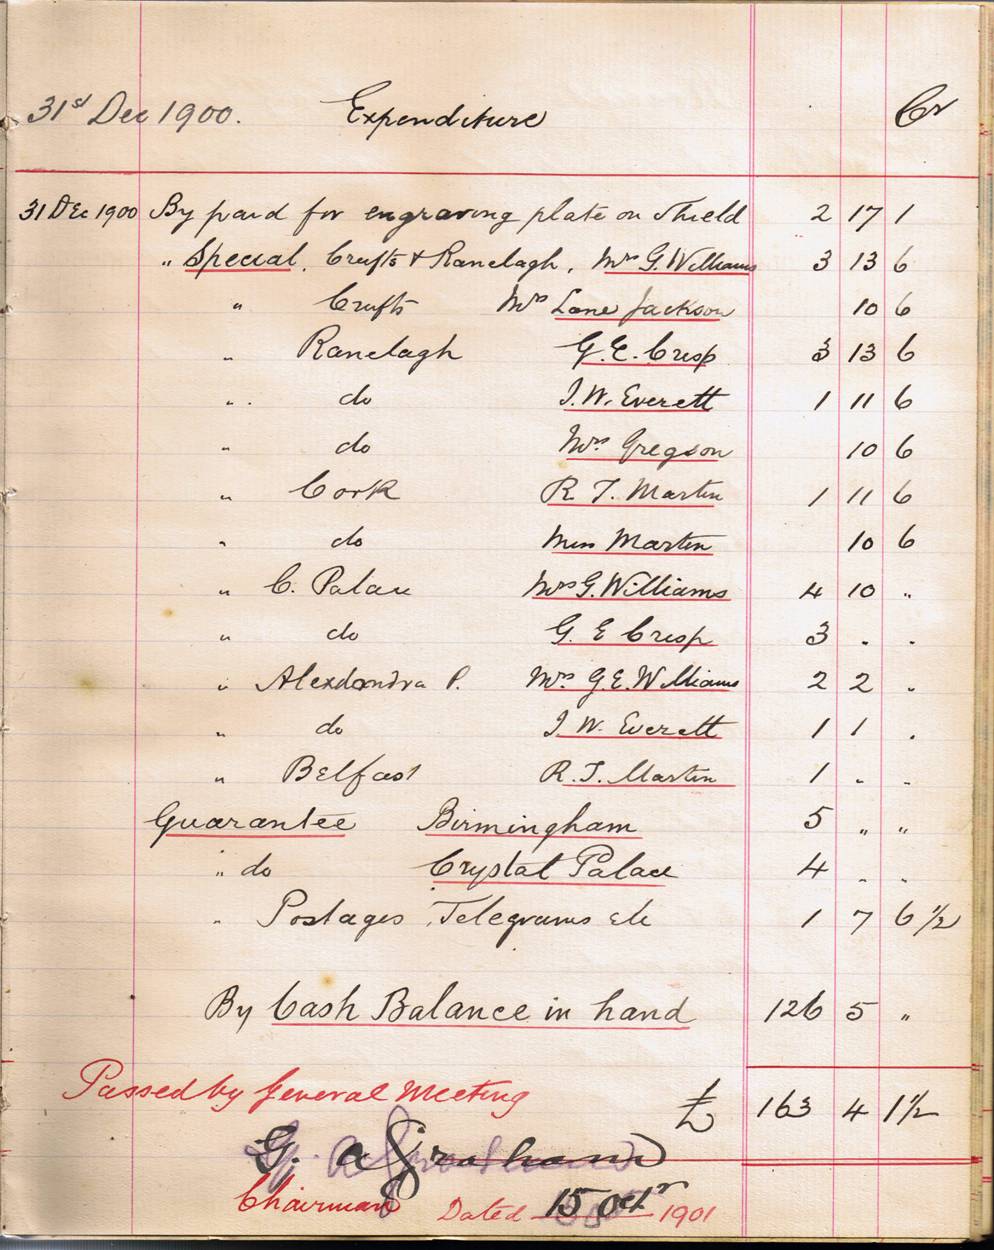 31st Dec 1900. Expenditure Cr
31 Dec 1900 By paid for engraving plate on Shield 2 17 1
" Special, Crufts & Ranelagh, Mrs G. Williams 3 13 6
" Crufts Mrs Lane Jackson 10 6
" Ranelagh G. E. Crisp 3 13 6
" do J. W. Everett 1 11 6
" do Mrs Gregson 10 6
" Cork R. T. Martin 1 11 6
" do Miss Martin 10 6
" C. Palace Mrs G. Williams 4 10 "
" do G. E Crisp 3 " "
" Alexdandra P. Mrs G. E. Williams 2 2 "
" do J. W. Everett 1 1 "
" Belfast R. T. Martin 1 " "
Guarantee Birmingham 5 " "
" do Crystal Palace 4 " "
" Postages, Telegrams etc 1 7 6 1/2
By Cash Balance in hand 126 5 "
Passed by General Meeting £ 163 4 1 1/2
G. a Graham
Chairman Dated 15 Octr 1901